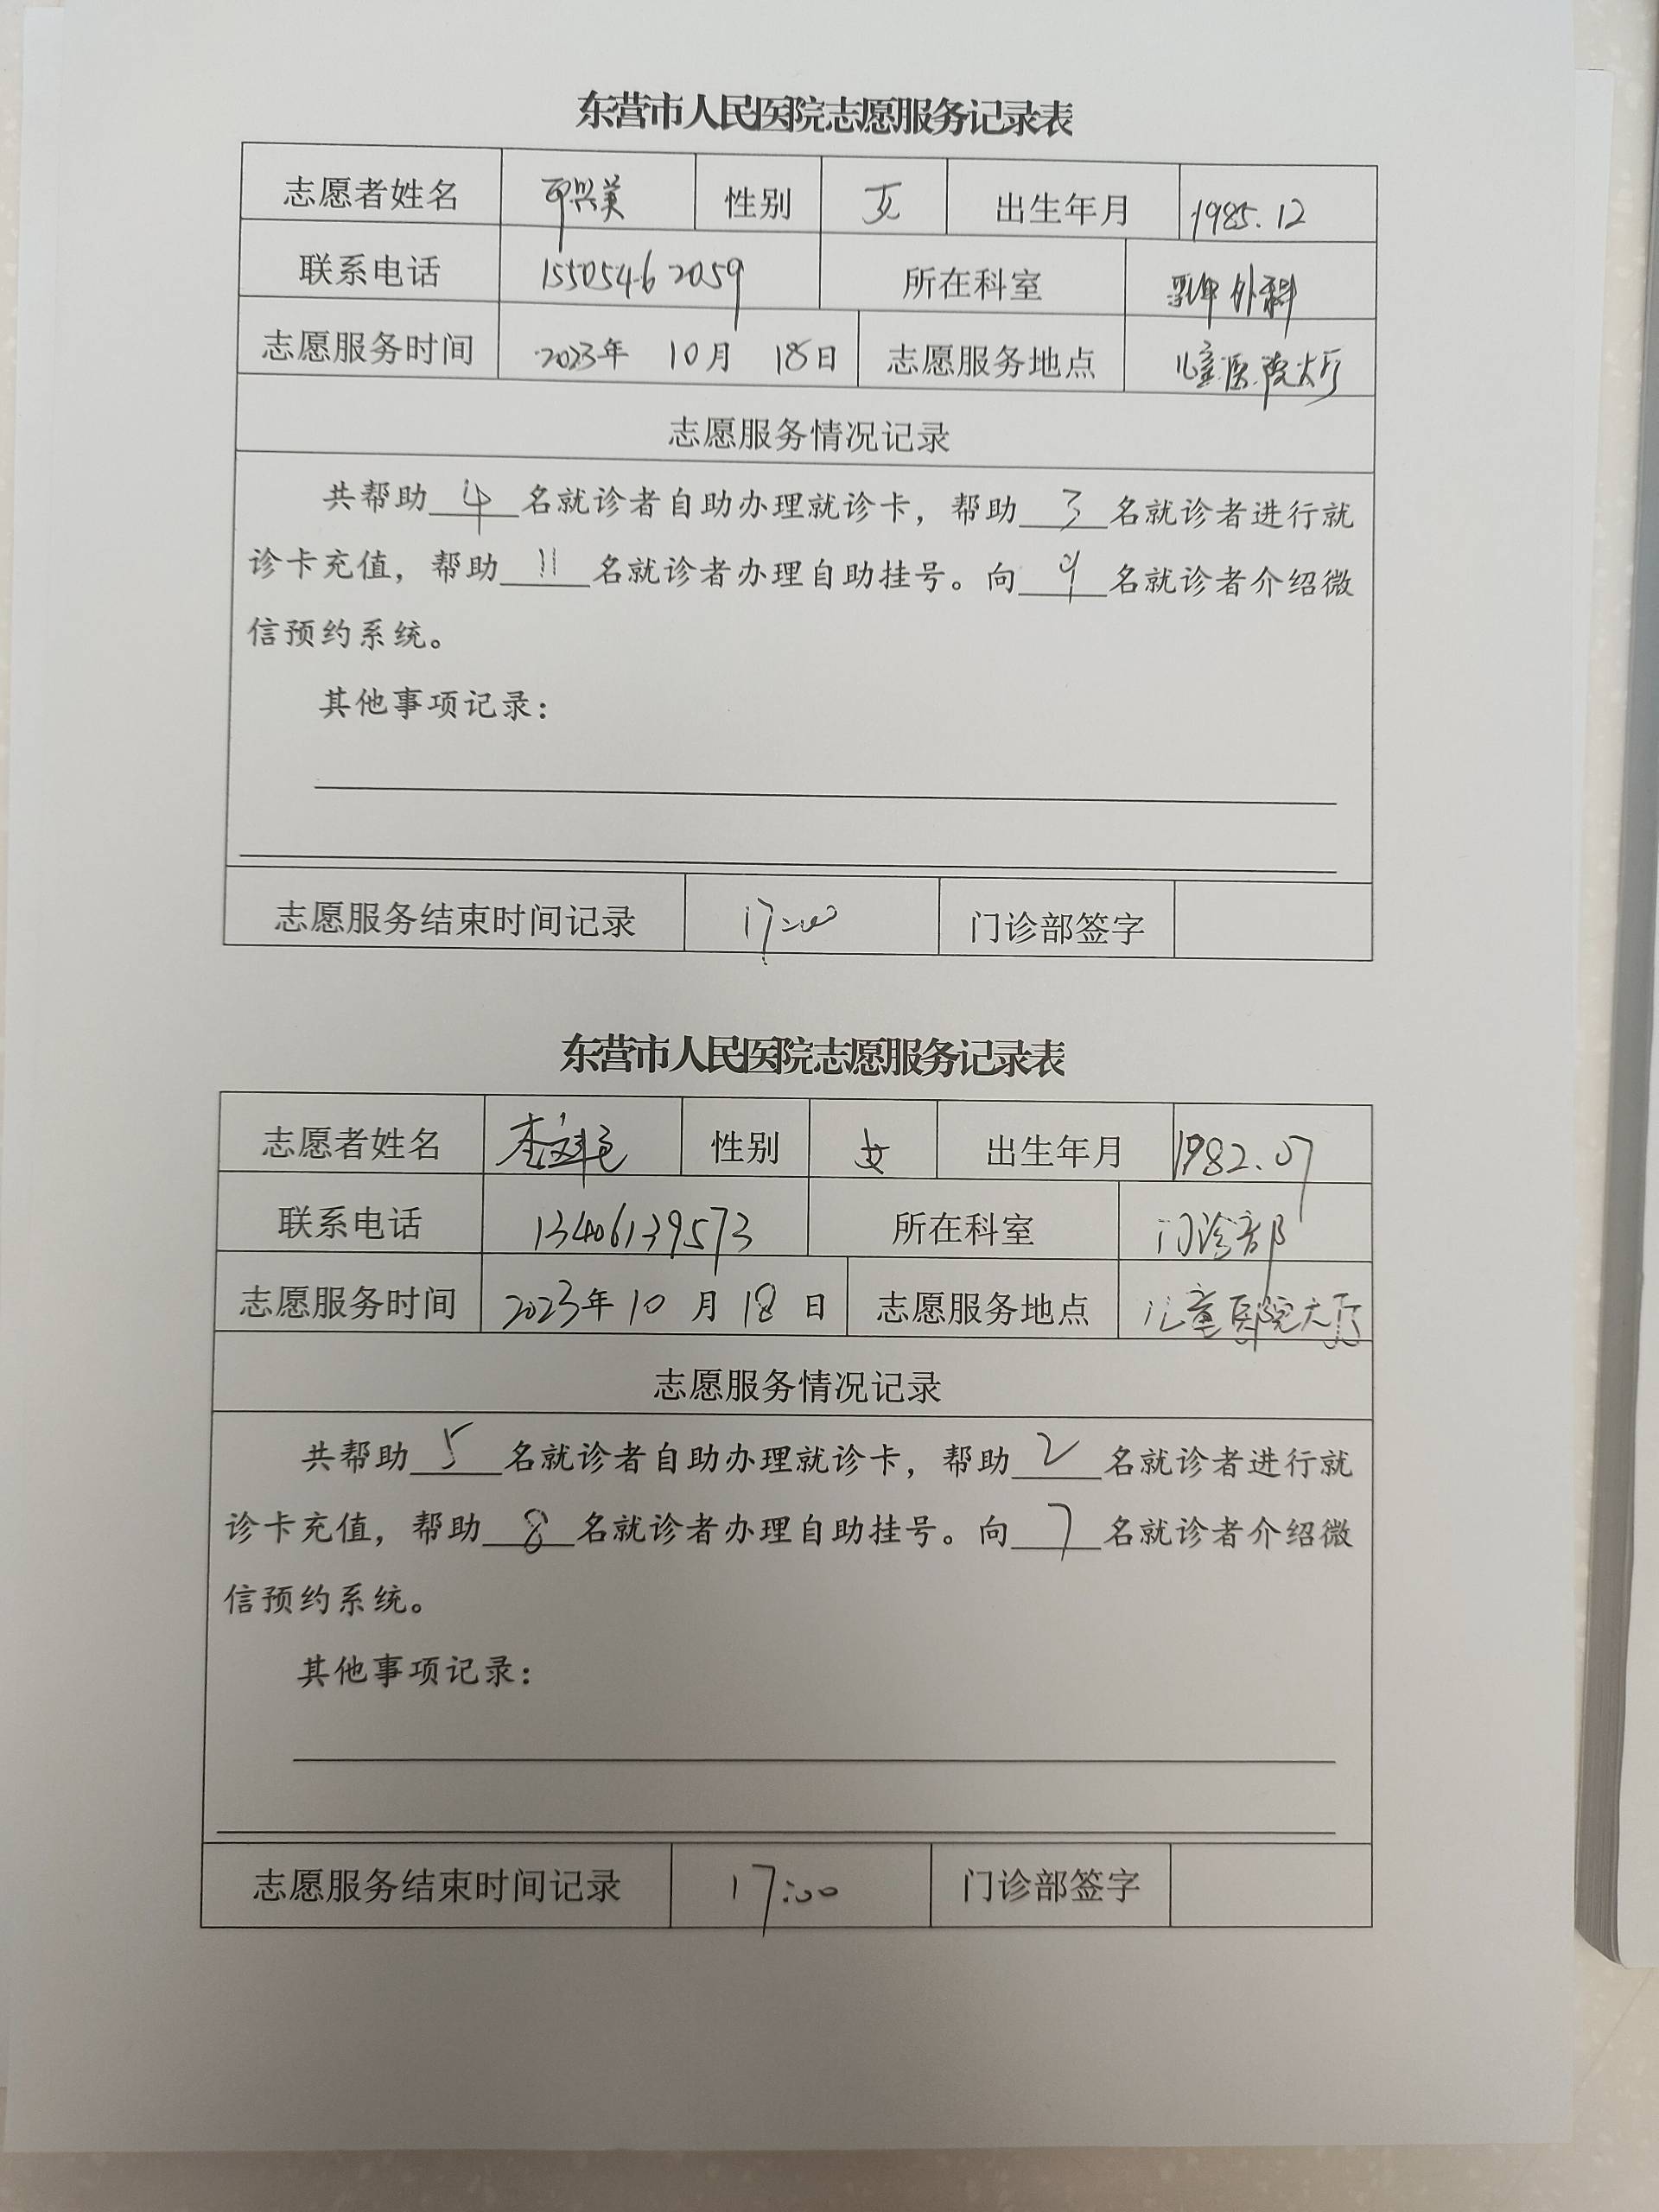 东营市人民医院志愿服务记录表
志愿者姓名 性别 女 出生年月 1985.12
联系电话 15505462059 所在科室 乳甲外科
志愿服务时间 2023年 10月 18日 志愿服务地点 儿童医院大厅
志愿服务情况记录
共帮助 4 名就诊者自助办理就诊卡，帮助 3 名就诊者进行就
诊卡充值，帮助 11 名就诊者办理自助挂号。向 9 名就诊者介绍微
信预约系统。
其他事项记录：
志愿服务结束时间记录 17:00 门诊部签字
东营市人民医院志愿服务记录表
志愿者姓名 性别 女 出生年月 1982.07
联系电话 13406139573 所在科室 门诊部
志愿服务时间 2023年 10 月 18 日 志愿服务地点 儿童医院大厅
志愿服务情况记录
共帮助 5 名就诊者自助办理就诊卡，帮助 2 名就诊者进行就
诊卡充值，帮助 8 名就诊者办理自助挂号。向 7 名就诊者介绍微
信预约系统。
其他事项记录：
志愿服务结束时间记录 17:00 门诊部签字